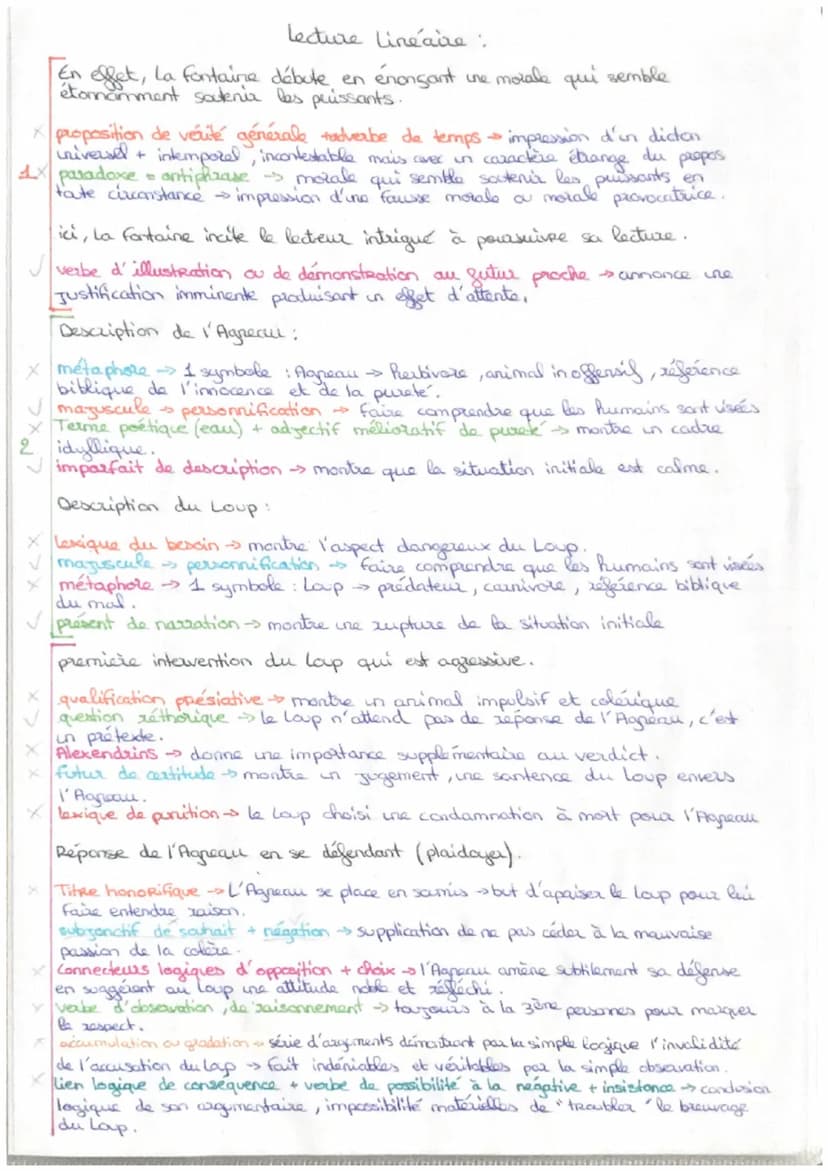 Lecture Linéaire :
En effet, La Fontaine débute en énonçant une morale qui semble
étonnamment soutenir les puissants.
x proposition de vérité générale + adverbe de temps → impression d'un dicton
universel + intemporel, incontestable mais avec un caractère étrange du propos
1x paradoxe = antiphrase → morale qui semble soutenir les puissants en
toute circonstance → impression d'une fausse morale ou morale provocatrice.
ici, La Fontaine incite le lecteur intrigué à poursuivre sa lecture.
√ verbe d'illustration ou de démonstration au futur proche → annonce une
justification imminente produisant un effet d'attente.
Description de l'Agneau :
x métaphore → 1 symbole : Agneau → herbivore, animal inoffensif, référence
biblique de l'innocence et de la pureté.
√ majuscule → personnification → faire comprendre que les humains sont visés
x Terme poétique (eau) + adjectif mélioratif de pureté → montre un cadre
2 idyllique.
√ imparfait de description → montre que la situation initiale est calme.
Description du Loup :
x lexique du besoin → montre l'aspect dangereux du Loup.
√ majuscule → personnification → faire comprendre que les humains sont visés
x métaphore → 1 symbole : Loup → prédateur, carnivore, référence biblique
du mal.
√ présent de narration → montre une rupture de la situation initiale
première intervention du Loup qui est agressive.
x qualification présiative → montre un animal impulsif et colérique
√ question réthorique → le Loup n'attend pas de réponse de l'Agneau, c'est
un prétexte.
x Alexendrins → donne une importance supplémentaire au verdict.
x futur de certitude → montre un jugement, une santence du Loup envers
l'Agneau.
x lexique de punition → le Loup choisi une condamnation à mort pour l'Agneau
Réponse de l'Agneau en se défendant (plaidoyer).
x Titre honorifique → L'Agneau se place en soumis → but d'apaiser le Loup pour lui
faire entendre raison.
subjonctif de souhait + négation → supplication de ne pas céder à la mauvaise
passion de la colère.
x Connecteurs logiques d'opposition + choix → l'Agneau amène subtilement sa défense
en suggérant au Loup une attitude noble et réfléchi.
x verbe d'observation, de raisonnement → toujours à la 3ème personnes pour marquer
le respect.
x accumulation ou gradation → série d'arguments démontrant par la simple logique l'invalidité
de l'accusation du Loup → fait indéniables et véritables par la simple observation.
x lien logique de conséquence + verbe de possibilité à la négative + insistance → conclusion
logique de son argumentaire, impossibilité matérielles de "troubler" le breuvage
du Loup.